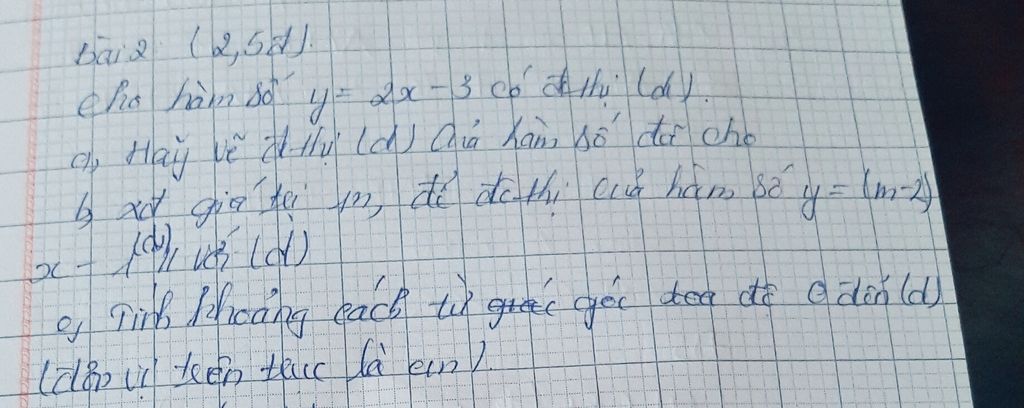 bài 2 (2,5đ).
Cho hàm số y = 2x - 3 có đ thị (d).
a, Hãy vẽ đ thị (d) Của hàm số đã cho
b, xđ giá trị m, để đồ thị của hàm số y = (m-2)
x - 1 (d') // với (d)
c, Tính khoảng cách từ gốc toạ độ O đến (d)
(đơn vị trên trục là cm).